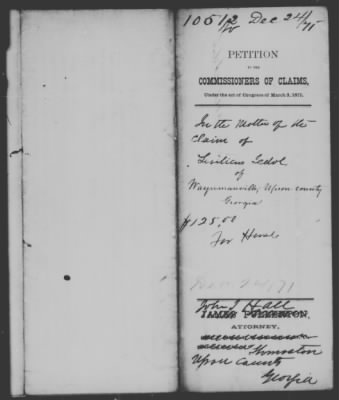 10512 Dec 24/71
PETITION
TO THE
COMMISSIONERS OF CLAIMS,
Under the act of Congress of March 3, 1871.
In the Matter of the
Claim of
of
Waynmanville, Upson county
Georgia
$125.00
For Horse
Dec. 24, 71
John I Hall
JAMES FULLERTON,
ATTORNEY,
Thomaston
Upson County
Georgia